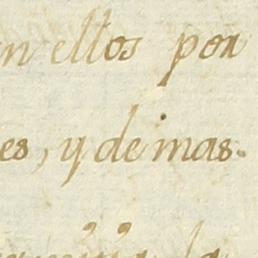 en ellos por
es, y demas.
la